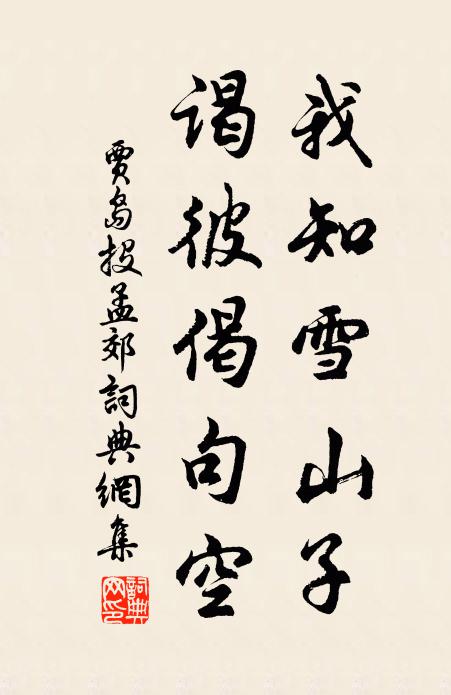 我知雪山子
谒彼偈句空
賈島投孟郊詞典網集
詞典网印